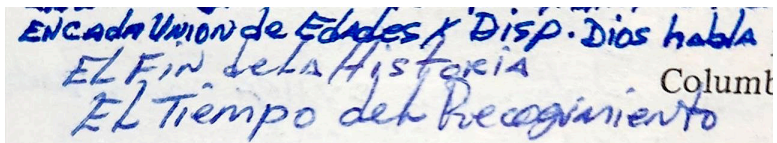 EnCada Union de Edades X Disp. Dios habla
EL Fin de la Historia
Columb
EL Tiempo del Recogimiento